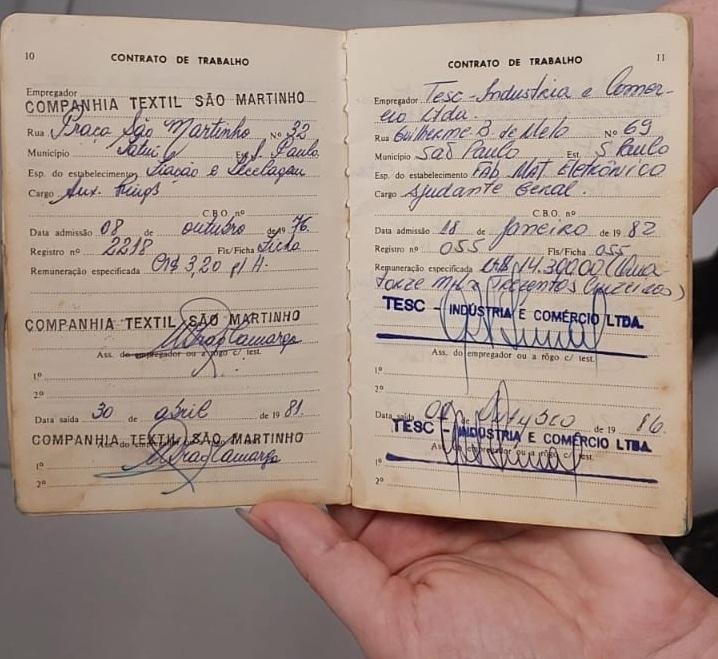 10
CONTRATO DE TRABALHO
Empregador
COMPANHIA TEXTIL SÃO MARTINHO
Rua Praça São Martinho Nº 32
Município Tatuí Est. S. Paulo
Esp. do estabelecimento Fiação e Tecelagem
Cargo Aux. Rings
C.B.O. nº
Data admissão 08 de outubro de 19 76.
Registro nº 2218 Fls/Ficha Ficha
Remuneração especificada CR$ 3,20 p/ H.
COMPANHIA TEXTIL SÃO MARTINHO
Ass. do empregador ou a rôgo c/ test.
1º
2º
Data saída 30 de abril de 19 81.
COMPANHIA TEXTIL SÃO MARTINHO
Ass. do empregador ou a rôgo c/ test.
1º
2º
11
CONTRATO DE TRABALHO
Empregador Tesc - Industria e Comer-
cio Ltda.
Rua Guilherme B. de Melo Nº 69
Município São Paulo Est. S Paulo
Esp. do estabelecimento FAB. MAT. ELETRÔNICO
Cargo Ajudante Geral.
C.B.O. nº
Data admissão 18 de Janeiro de 19 82
Registro nº 055 Fls/Ficha 055
Remuneração especificada 14.300,00 (Qua-
torze Mil e Trezentos Cruzeiros)
TESC - INDÚSTRIA E COMÉRCIO LTDA.
Ass. do empregador ou a rôgo c/ test.
1º
2º
Data saída de de 19 86.
TESC - INDÚSTRIA E COMÉRCIO LTDA.
Ass. do empregador ou a rôgo c/ test.
1º
2º